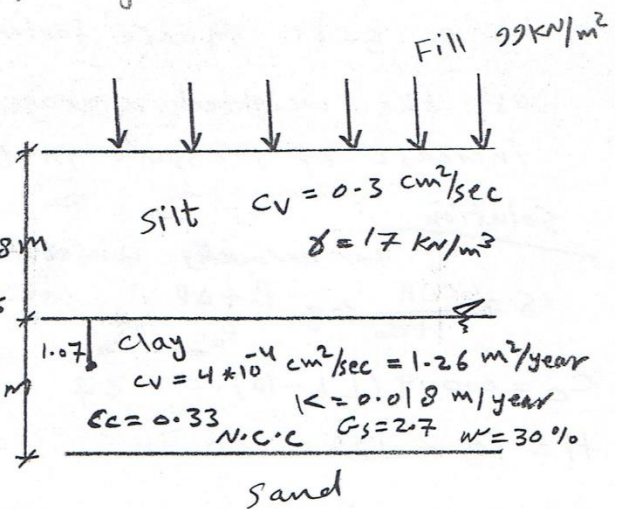 Fill 99 KN/m²
Silt Cv = 0.3 cm²/sec
8 m
γ = 17 KN/m³
1.07 clay
Cv = 4*10⁻⁴ cm²/sec = 1.26 m²/year
m
K = 0.018 m/year
Cc = 0.33
N.C.C Gs = 2.7 w = 30 %
Sand